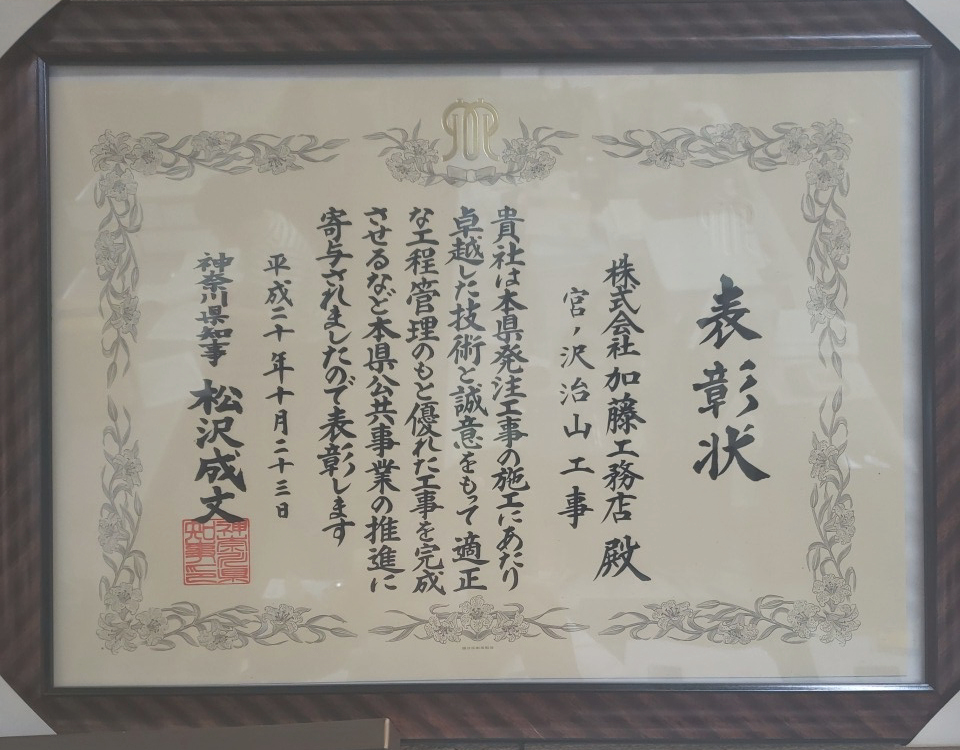 表彰状
株式会社加藤工務店 殿
宮ノ沢治山工事
貴社は本県発注工事の施工にあたり
卓越した技術と誠意をもって適正
な工程管理のもと優れた工事を完成
させるなど本県公共事業の推進に
寄与されましたので表彰します
平成二十年十月二十三日
神奈川県知事 松沢成文
神奈川県
知事印